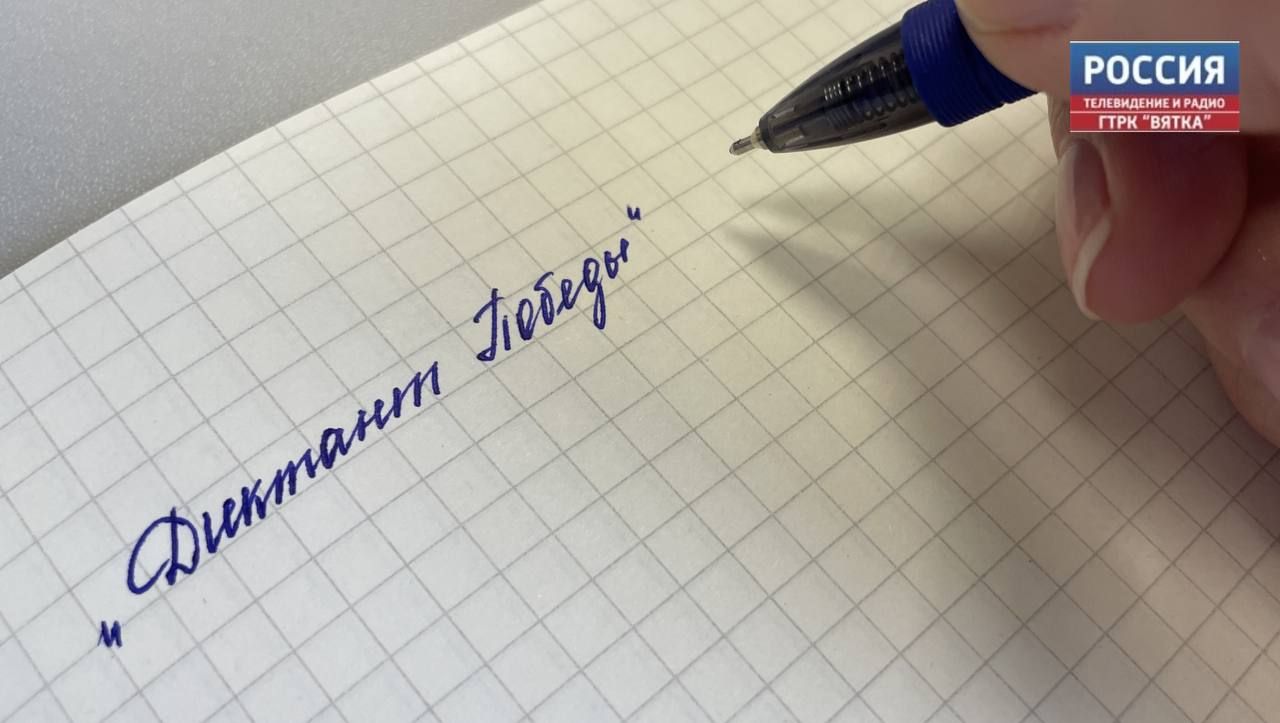 „Диктант Победы"
РОССИЯ
ТЕЛЕВИДЕНИЕ И РАДИО
ГТРК "ВЯТКА"